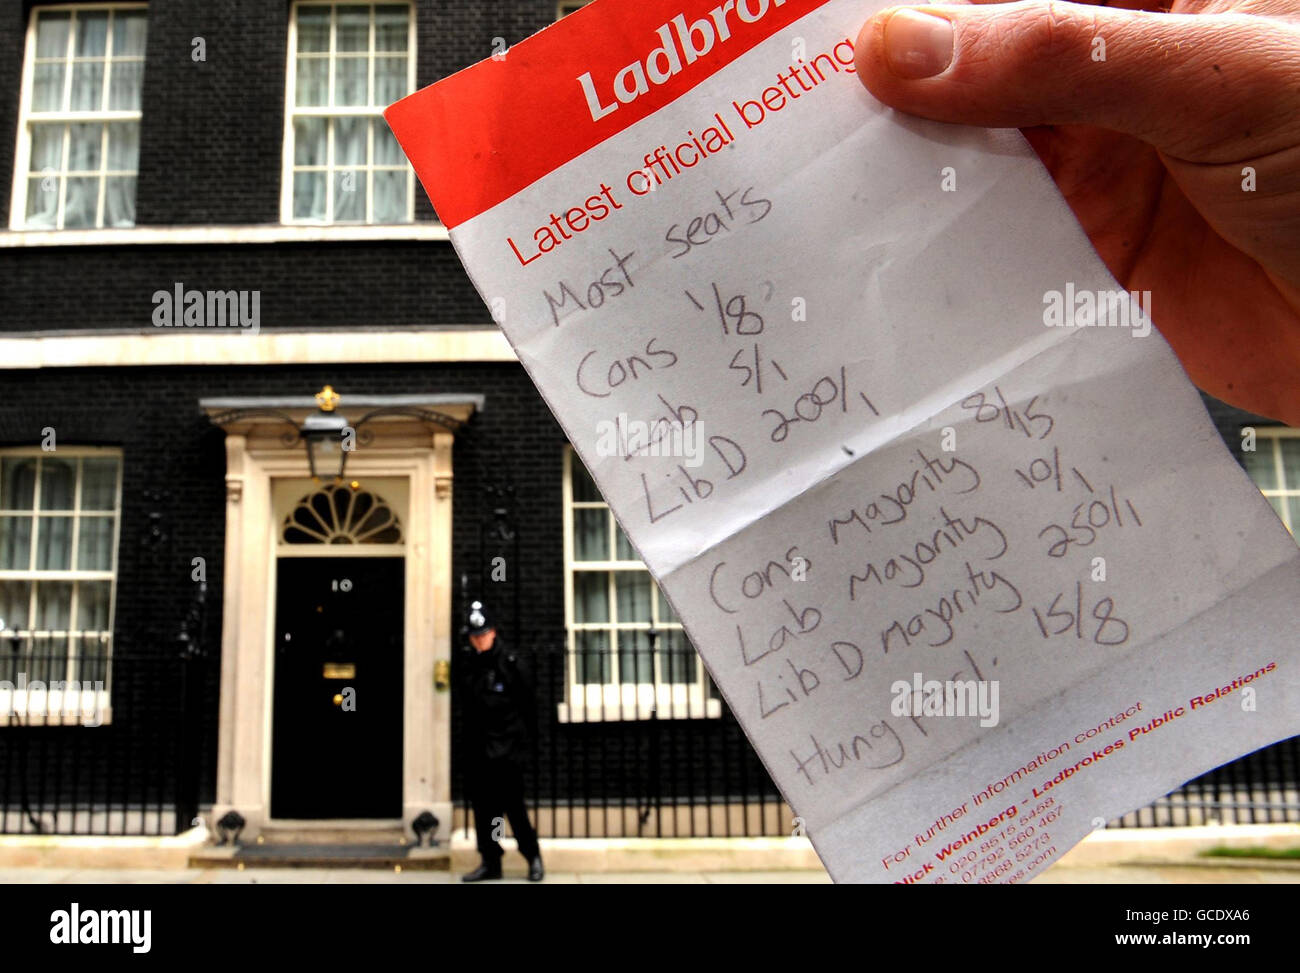 10
Ladbro
Latest official betting
Most seats
Cons 1/8
Lab 5/1
Lib D 200/1
Cons majority 8/15
Lab majority 10/1
Lib D majority 250/1
Hung Parl. 15/8
For further information contact
Nick Weinberg - Ladbrokes Public Relations
020 8515 5458
07792 560 467
8868 5273
es.com
alamy
alamy
Image ID: GCDXA6
www.alamy.com